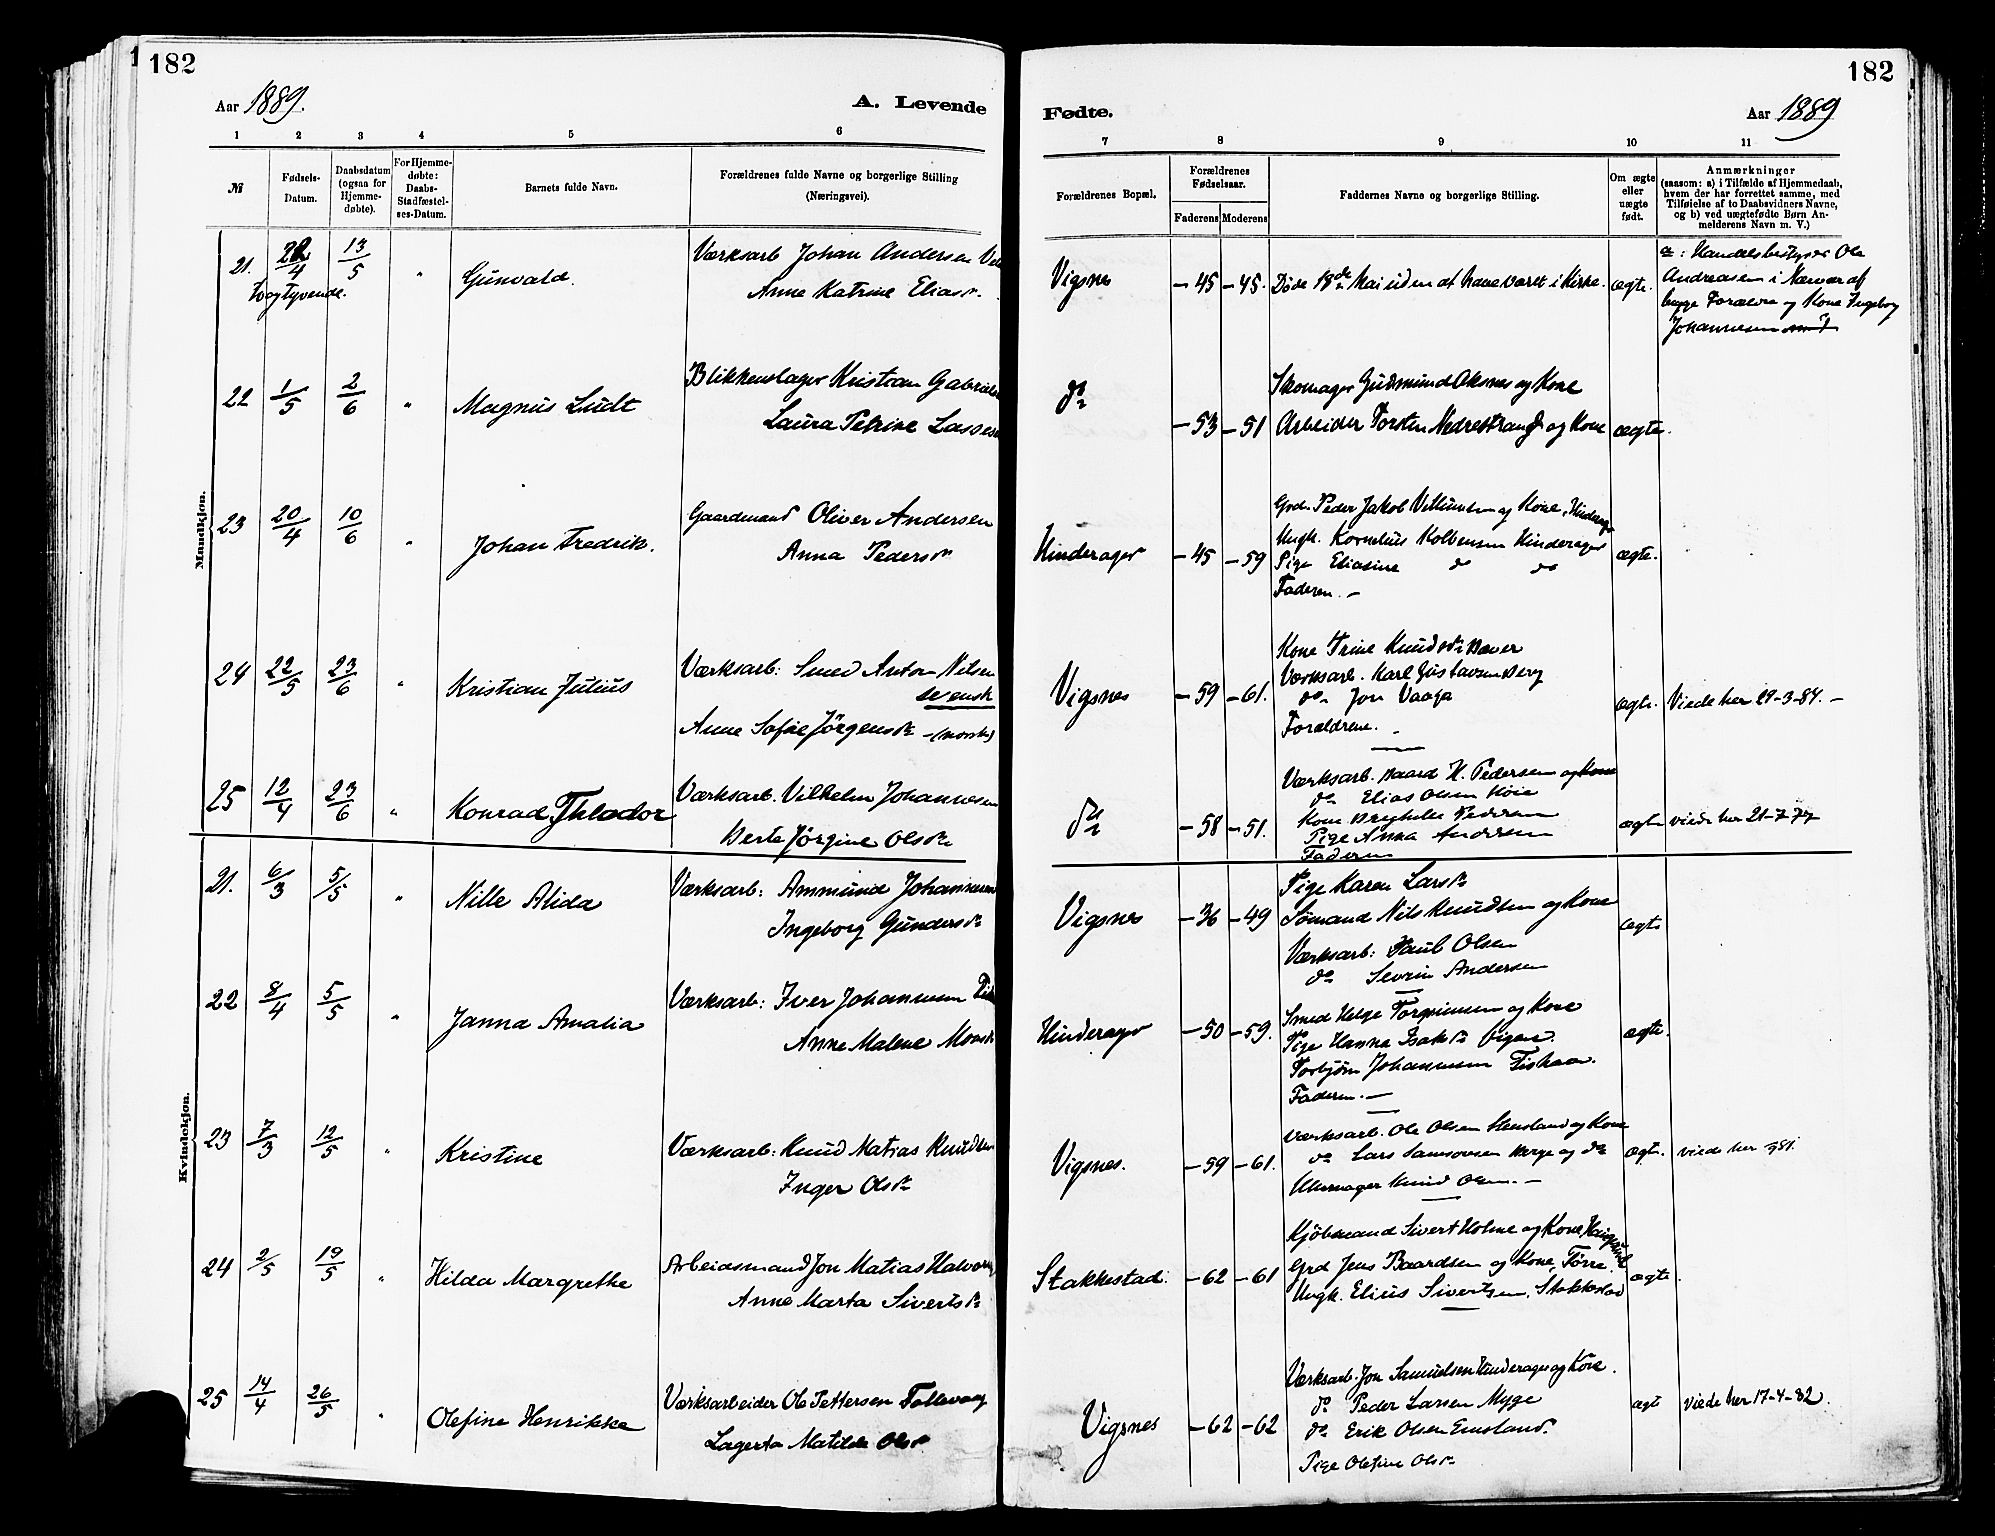 182
Aar 1889.
A. Levende
1 2 3 4 5 6
№ Fødsels-Datum. Daabsdatum (ogsaa for Hjemme-døbte). For Hjemme-døbte: Daabs-Stadfæstel-ses-Datum. Barnets fulde Navn. Forældrenes fulde Navne og borgerlige Stilling (Næringsvei).
Mandkjøn.
21. 22/4 13/5 " Gunvald. Værksarb Johan Andersen
toogtyvende. Anne Katrine Eliasdr.
22 1/5 2/6 " Magnus Ludt Blikkenslager Kristian Gabriels
Laura Petrine Lasses
23 20/4 10/6 " Johan Fredrik. Gaardmand Oliver Andersen
Anna Pedersdr
24 22/5 23/6 " Kristian Julius Værksarb: Smed Anton Nilsen
svensk
Anne Sofie Jörgensdr - (norsk)
25 12/4 23/6 " Konrad Theodor Værksarb. Vilhelm Johannesen
Berte Jörgine Olsdr
Kvindekjøn.
21. 6/3 5/5 " Nille Alida Værksarb: Ammund Johannesen
Ingeborg Gundersdr
22 8/4 5/5 " Janna Amalia Værksarb: Iver Johannesen
Anne Malene Monsdr
23 7/3 12/5 " Kristine Værksarb: Knud Matias Knudsen
Inger Olsdr
24 2/5 19/5 " Hilda Margrethe Arbeidsmand Jon Matias Halvors
Anne Marta Sivertsdr
25 14/4 26/5 " Olefine Henrikke Værksarbeider Ole Pettersen Follevaag
Lagerta Matilde Olsdr
182
Fødte.
Aar 1889
7 8 9 10 11
Forældrenes Bopæl. Forældrenes Fødselsaar. Faderens Moderens Faddernes Navne og borgerlige Stilling. Om ægte eller uægte født. Anmærkninger (saasom: a) i Tilfælde af Hjemmedaab, hvem der har forrettet samme, med Tilføielse af to Daabsvidners Navne, og b) ved uægtefødte Børn An-melderens Navn m. V.)
Vigsnes - 45 - 45. Døde 18de Mai uden at have været i Kirke. ægte. a: Handelsbestyrer Ole
Andreasen i Nærvær af
begge Forældre og Kone Ingeborg
Johannesen
do - 53 - 51 Skomager Gudmund Aksnes og Kone
Arbeider Torsten Nedrestrand og Kone ægte.
Hinderager - 45 - 59 Grd. Peder Jakob Villumsen og Kone, Hinderager
Ungk. Kornelius Kolbensen Hinderager ægte.
Pige Eliasine do do
Faderen. -
Vigsnes - 59 - 61. Kone Trine Knudsdr Bæver
Værksarb. Karl Gustavsen Berg
do Jon Vaaga ægte. Viede her 29-3-84. -
Forældrene.
do - 58 - 51. Værksarb. Baard H. Pedersen og Kone
do Elias Olsen Höie
Kone Pedersen ægte viede her 21-7-77
Pige Anna Andersen
Faderen
Vigsnes - 36 - 49 Pige Karen Larsdr
Sömand Nils Knudsen og Kone ægte
Værksarb: Paul Olsen
do Sevrin Andersen
Hinderager - 50 - 59. Smed Helge Torgrimsen og Kone
Pige Hanna Isaksdr Vigsn. ægte.
Torbjörn Johannesen Fiskaa.
Faderen. -
Vigsnes. - 59 - 61. Værksarb. Ole Olsen og Kone
do Lars Samsonsen og do ægte. viede her 81.
Uhrmager Knud Olsen. -
Stakkestad. - 62 - 61 Kjöbmand Sivert Holme og Kone Haugesund
Grd Jens Baardsen og Kone, Förre. ægte.
Ungk. Elius Sivertsen, Stakkestad
Vigsnes - 62 - 62 Værksarb. Jon Samuelsen Hinderager og Kone.
do Peder Larsen Myge ægte viede her 17-4-82.
do Erik Olsen Emsland.
Pige Olefine Olsdr